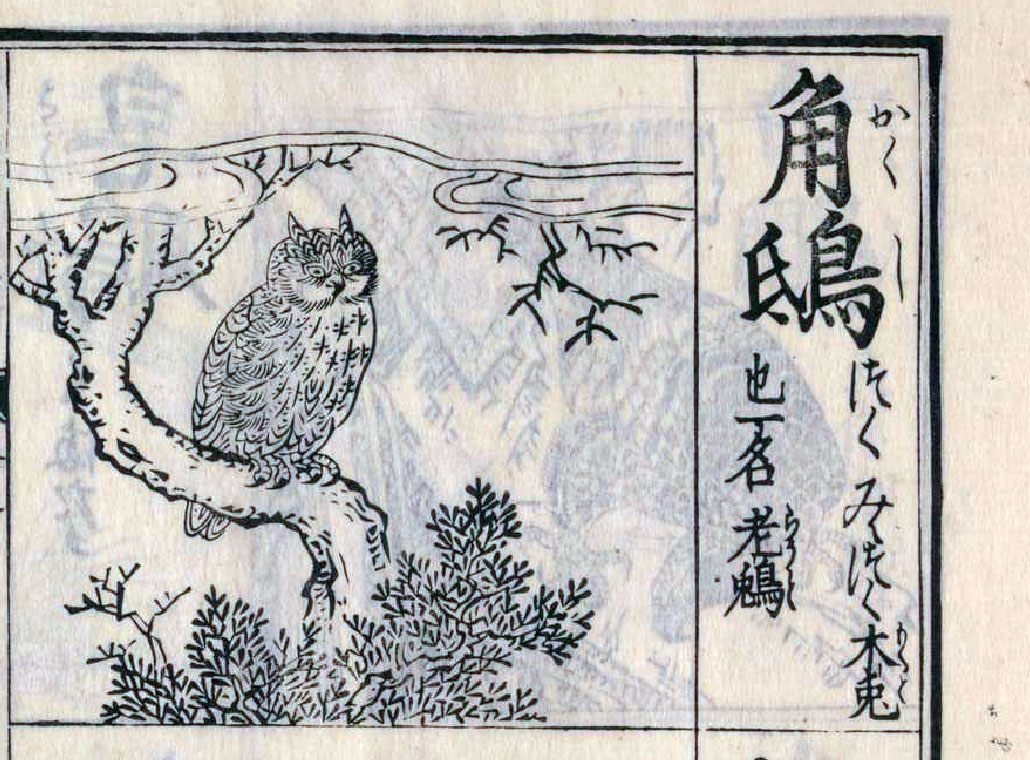 角鴟
かくし
つくみゝつく木兎
もくと
也一名老鵵